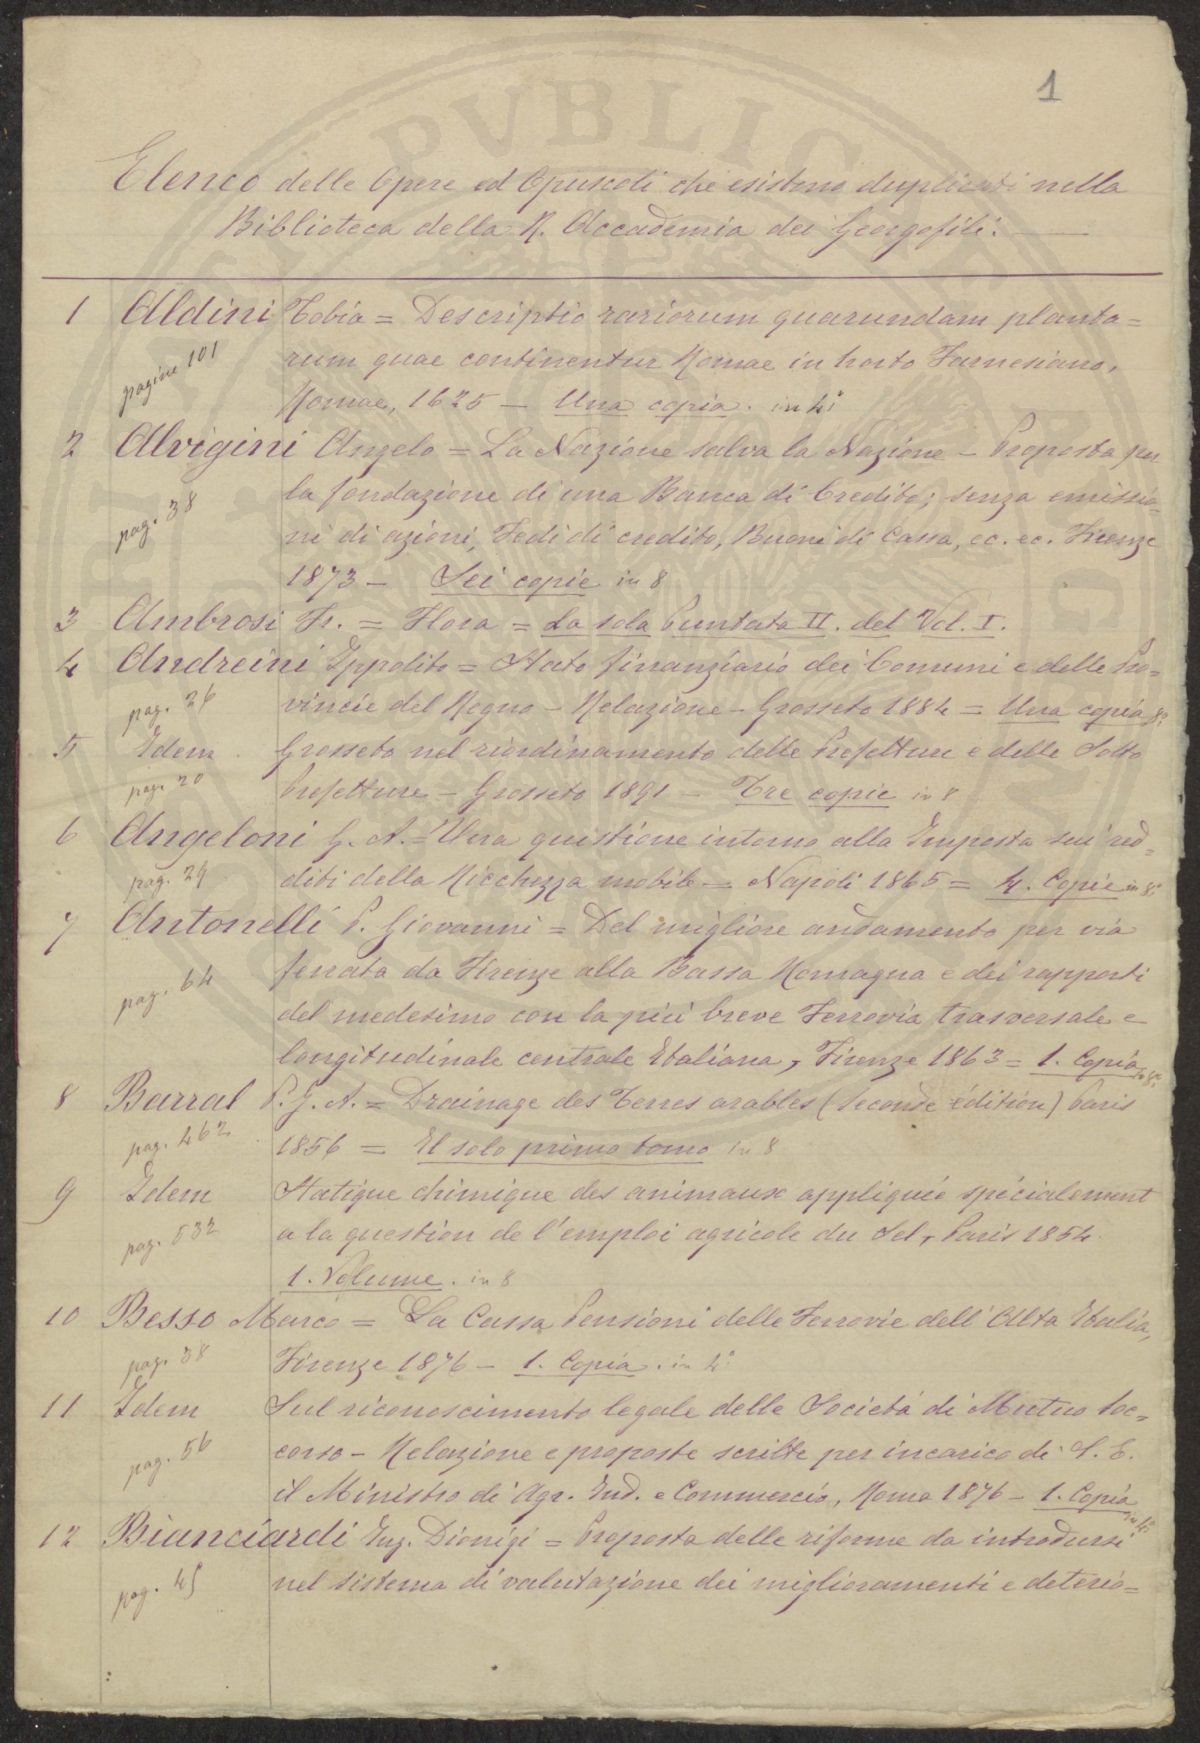 1
Elenco delle Opere ed Opuscoli che esistono duplicati nella
Biblioteca della R. Accademia dei Georgofili.
1 Aldini Tobia = Descriptio rariorum quarundam planta=
pagine 101 rum quae continentur Romae in horto Farnesiano,
Romae, 1625 — Una copia. in 4°
2 Alvigini Angelo = La Nazione salva la Nazione — Proposta per
la fondazione di una Banca di Credito; senza emissio=
pag. 38 ni di azioni, Fedi di credito, Buoni di Cassa, ec. ec. Firenze
1873 — Sei copie in 8
3 Ambrosi Fr. = Flora = La sola Puntata II. del Vol. I.
4 Andreini Ippolito = Stato finanziario dei Comuni e delle Pro=
pag. 26 vincie del Regno — Relazione — Grosseto 1884 = Una copia 8°
5 Idem Grosseto nel riordinamento delle Prefetture e delle Sotto
pag. 20 Prefetture — Grosseto 1891 — Tre copie in 8
6 Angeloni G. A. = Una quistione intorno alla Imposta sui red=
pag. 29 diti della Ricchezza mobile = Napoli 1865 = 4. Copie in 8°
7 Antonelli P. Giovanni = Del migliore andamento per via
pag. 64 ferrata da Firenze alla Bassa Romagna e dei rapporti
del medesimo con la più breve Ferrovia trasversale e
longitudinale centrale Italiana, Firenze 1863 = 1. Copia in 8°
8 Barral P. G. A. = Drainage des Terres arables (Seconde édition) Paris
pag. 462 1856 = Il solo primo tomo in 8
9 Idem Statique chimique des animaux appliquée spécialement
pag. 532 a la question de l'emploi agricole du Sel, Paris 1854
1. Volume. in 8
10 Besso Marco = La Cassa Pensioni delle Ferrovie dell'Alta Italia,
pag. 38 Firenze 1876 — 1. Copia. in 4°
11 Idem Sul riconoscimento legale delle Società di Mutuo Soc=
pag. 56 corso — Relazione e proposte scritte per incarico di S. E.
il Ministro di Agr. Ind. e Commercio, Roma 1876 — 1. Copia
in 4°
12 Bianciardi Ing. Dionigi = Proposta delle riforme da introdursi
pag. 45 nel sistema di valutazione dei miglioramenti e deterio=